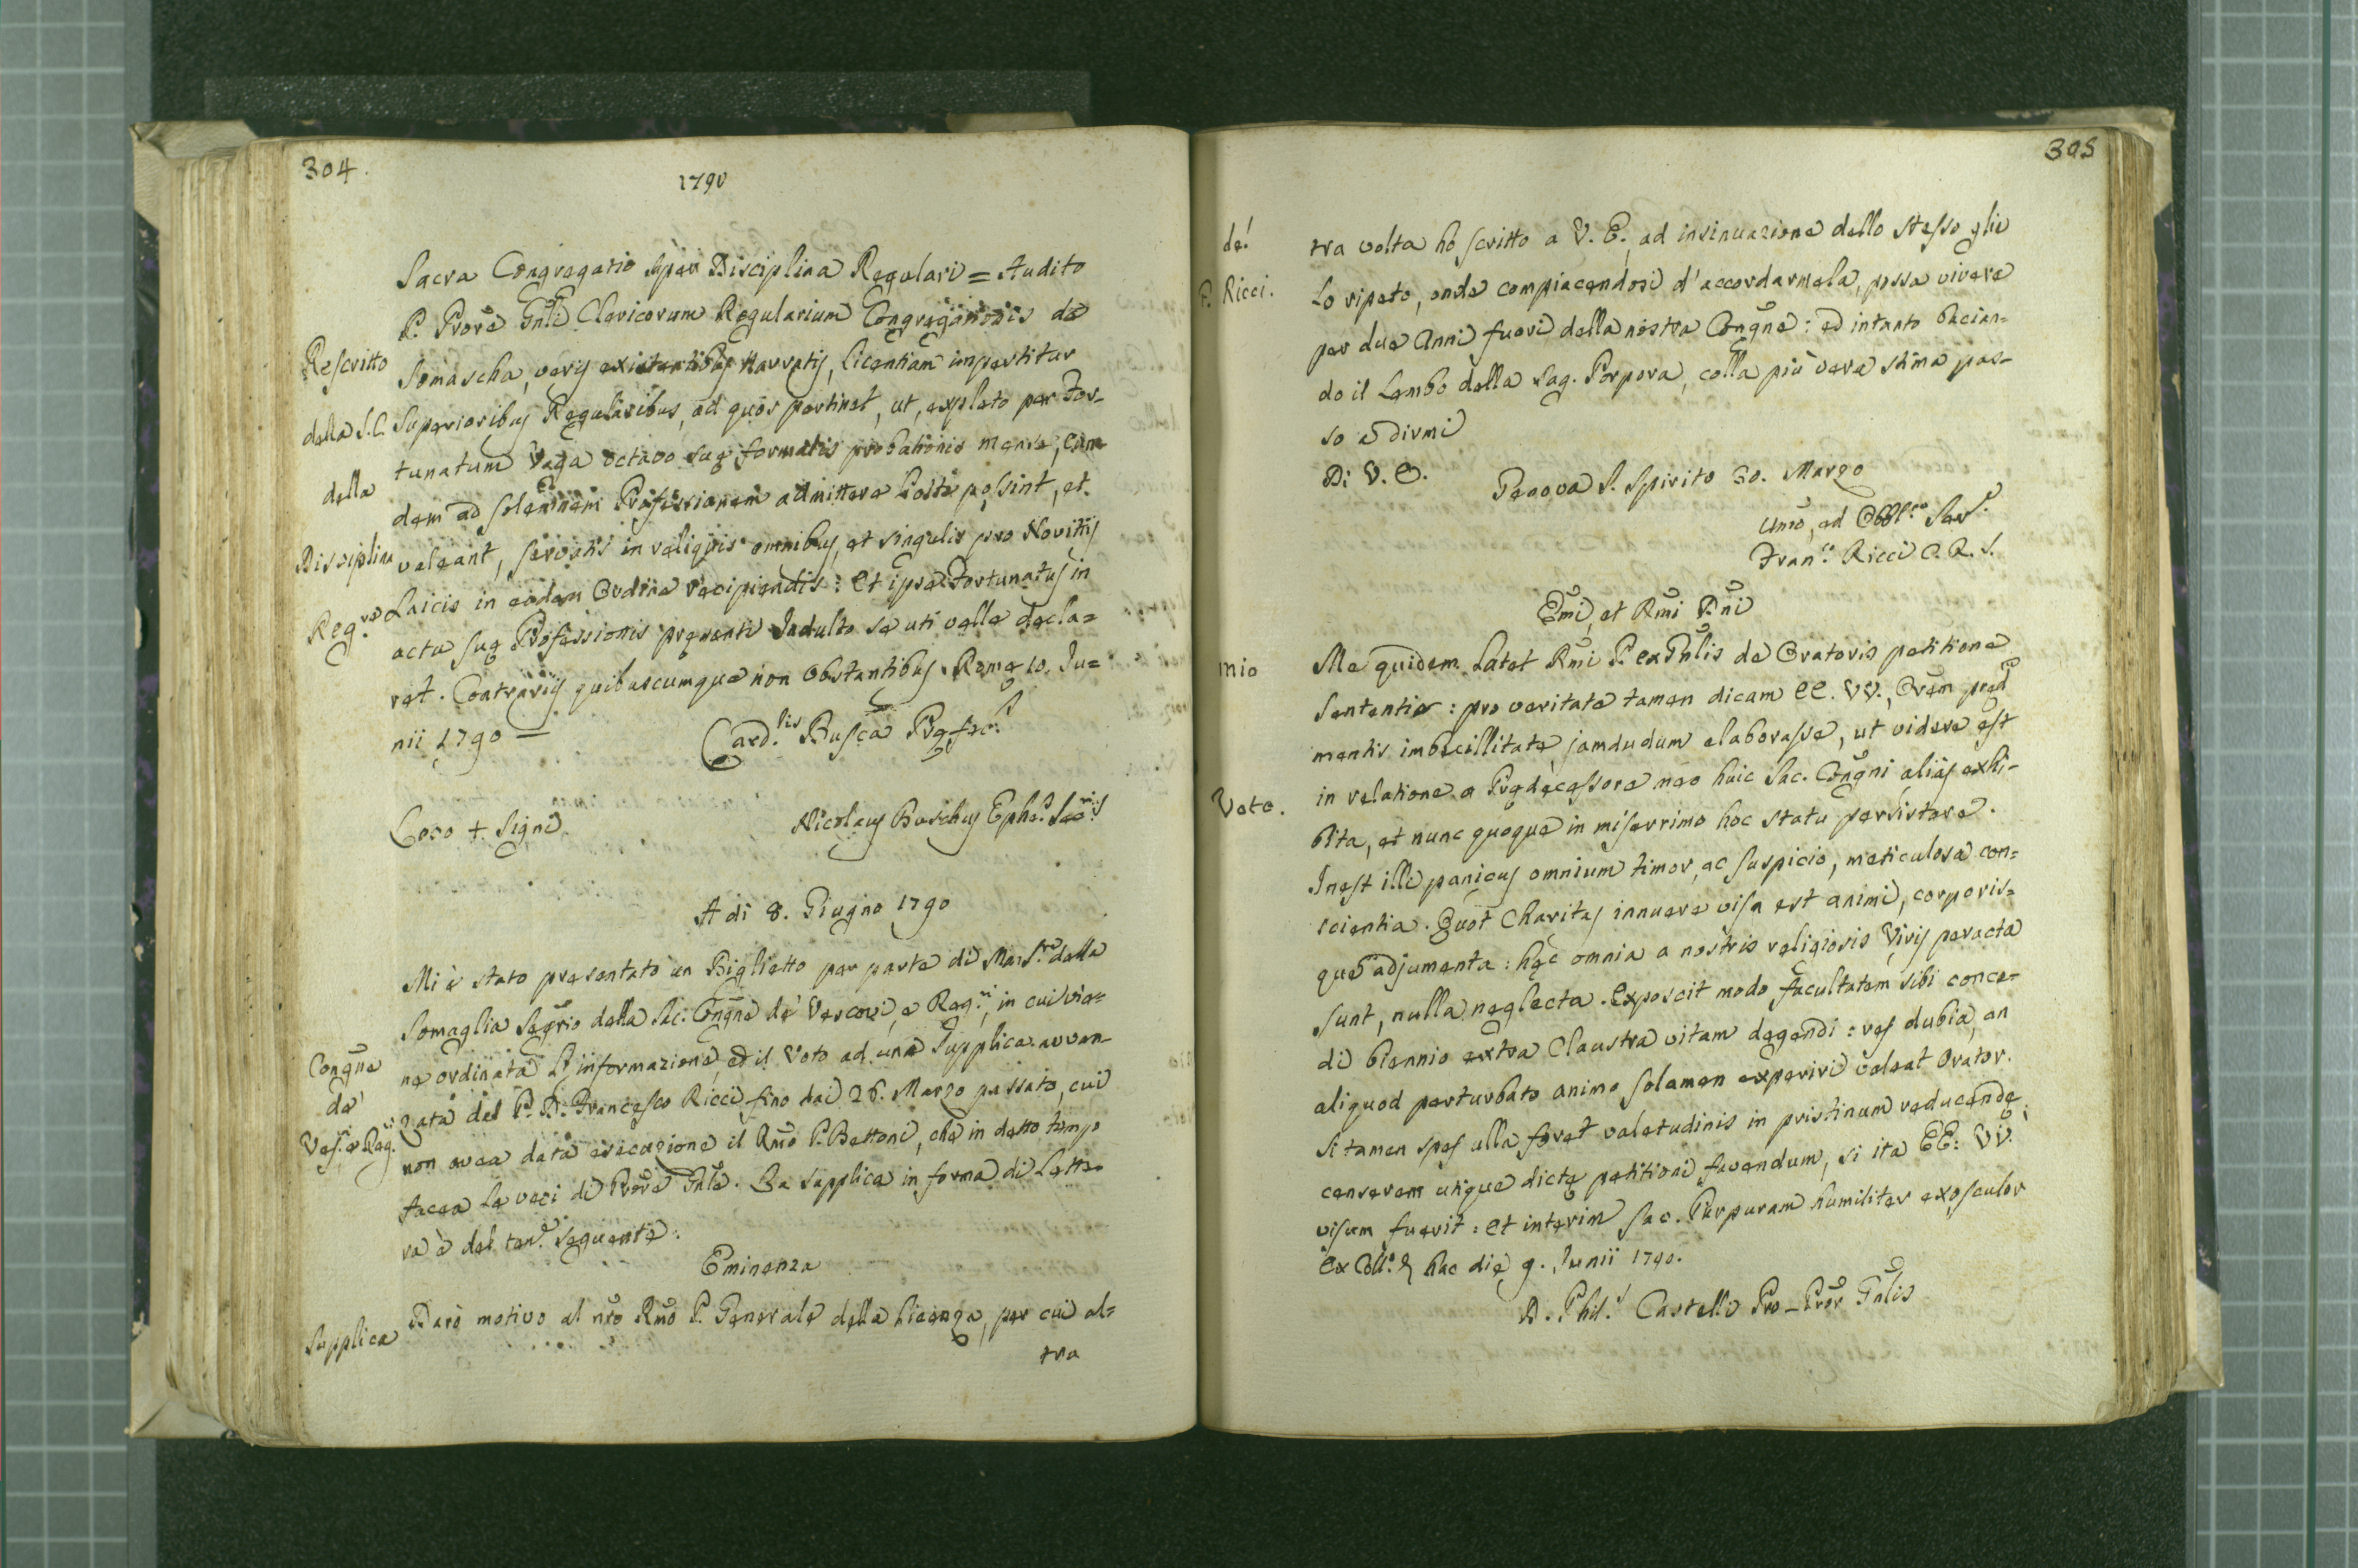 304.
1790
Sacra Congregatio super Disciplina Regulari = Audito
P. Prore Gnli Clericorum Regularium Congregationis de
Rescritto
Somascha, veris existentibus narratis, licentiam impertitur
della S.C.
Superioribus Regularibus, ad quos pertinet, ut, expleto per For-
tunatum Vaga octavo suę formalis probationis mense, eum-
della
dem ad solemnem Professionem admittere licitè possint, et
Disciplina
valeant, servatis in reliquis omnibus, et singulis pro Novitiis
Laicis in eodem Ordine recipiendis: Et ipse Fortunatus in
Reg.re
actu suę Professionis pręsenti Indulto se uti velle decla=
ret. Contrariis quibuscumque non obstantibus. Romę 10. Ju=
nii 1790 —
Card.lis Busca Pręfec.s
Loco + Signi
Nicolaus Buschius Ephe.s Sec.rius
A di 8. Giugno 1790
Mi è stato presentato un Biglietto per parte di Mons.re della
Somaglia Segrio della Sac. Congne de' Vescovi, e Reg.ri, in cui vie=
Congne
ne ordinata l'informazione, ed il Voto ad una Supplica avvan-
de'
zata dal P. D. Francesco Ricci fino dai 26. Marzo passato, cui
Ves. e Reg.ri
non avea data esecuzione il Rmo P. Bettoni, che in detto tempo
facea le veci di Prore Gnle. La supplica in forma di Lette-
ra è del ten.e seguente:
Eminenza
Supplica
Darò motivo al nro Rmo P. Generale della licenza, per cui al=
tra
305
de!
tra volta hò scritto a V. E. ad insinuazione dello stesso glie
P. Ricci.
Lo ripeto, onde compiacendosi d'accordarmela, possa vivere
per due Anni fuori della nostra Congne: ed intanto bacian-
do il Lembo della Sag. Porpora, colla più vera stima pas-
so a dirmi
Di V. E.
Genova S. Spirito 30. Marzo
Umo, ed Obbl.mo Ser.e
Fran.co Ricci C. R. S.
Emi, et Rmi Dni
mio
Me quidem latet Rmi P. ExGnlis de Oratoris petitione
sententia: pro veritate tamen dicam EE. VV., Orem pred
mentis imbecillitate, jamdudum elaborasse, ut videre est
in relatione a Prędecessore meo huic Sac. Congni alias exhi-
Voto.
bita, et nunc quoque in miserrimo hoc statu persistere.
Inest illi panicus omnium timor, ac suspicio, meticulosa con=
scientia. Quot Charitas innuere visa est animi, corporis=
que adjumenta: hęc omnia a nostris religiosis Viris peracta
sunt, nulla neglecta. Exposcit modo facultatem sibi conce-
di biennio extra Claustra vitam degendi: res dubia, an
aliquod perturbato animo solamen experiri valeat Orator.
Si tamen spes ulla foret valetudinis in pristinum reducendę,
censerem utique dictę petitioni favendum, si ita EE: VV.
visum fuerit: Et interim Sac. Purpuram humiliter exosculor
Ex Coll.o & hac die 9. Junii 1790.
D. Phil.s Castelli Pro-Pror Gnlis